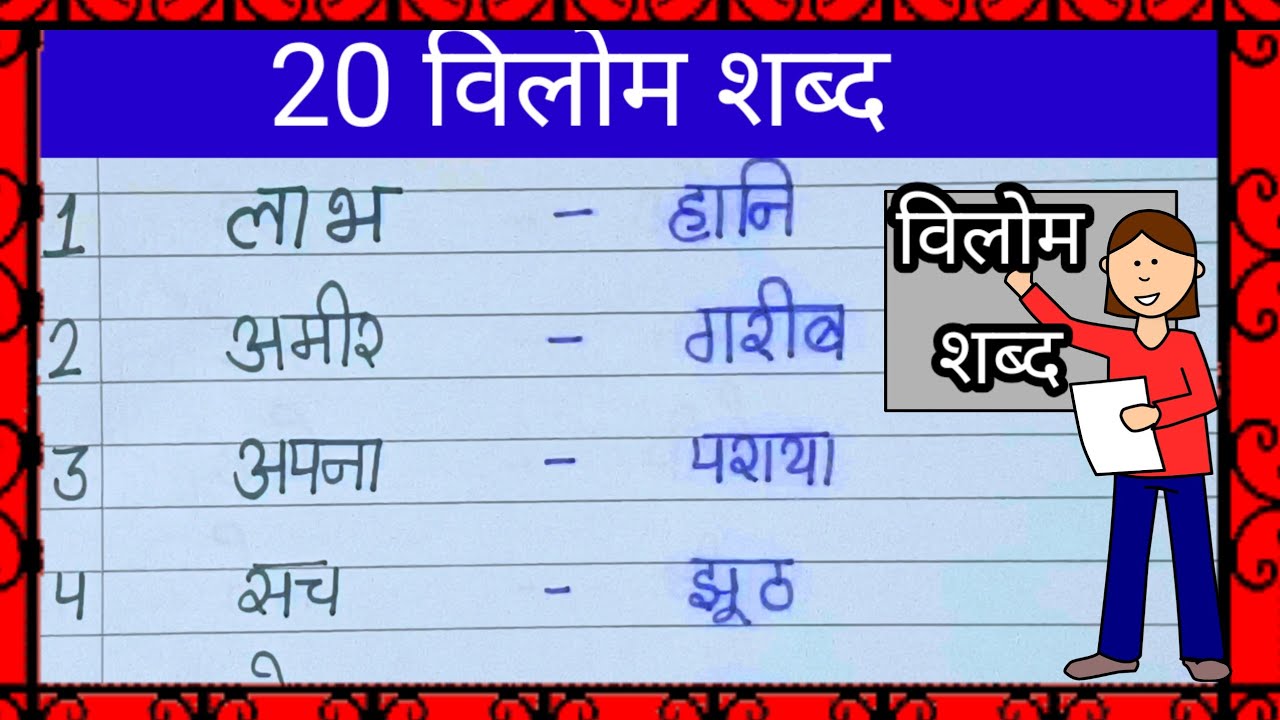 20 विलोम शब्द
1 लाभ - हानि
2 अमीर - गरीब
3 अपना - पराया
4 सच - झूठ
विलोम
शब्द